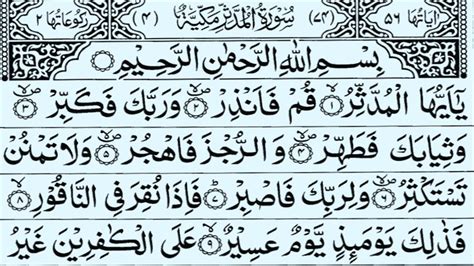 اٰیاتها ٥٦ (٧٤) سُوْرَةُ الْمُدَّثِّرِ مَكِّيَّةٌ (٤) رکوعاتها ٢
بِسْمِ اللّٰهِ الرَّحْمٰنِ الرَّحِيْمِ
يٰۤاَيُّهَا الْمُدَّثِّرُ ۙ﴿١﴾ قُمْ فَاَنْذِرْ ۪ۙ﴿٢﴾ وَرَبَّكَ فَكَبِّرْ ۪ۙ﴿٣﴾
وَثِيَابَكَ فَطَهِّرْ ۪ۙ﴿٤﴾ وَالرُّجْزَ فَاهْجُرْ ۪ۙ﴿٥﴾ وَلَا تَمْنُنْ
تَسْتَكْثِرُ ۪ۙ﴿٦﴾ وَلِرَبِّكَ فَاصْبِرْ ؕ﴿٧﴾ فَاِذَا نُقِرَ فِي النَّاقُوْرِ ۙ﴿٨﴾
فَذٰلِكَ يَوْمَئِذٍ يَّوْمٌ عَسِيْرٌ ۙ﴿٩﴾ عَلَى الْكٰفِرِيْنَ غَيْرُ